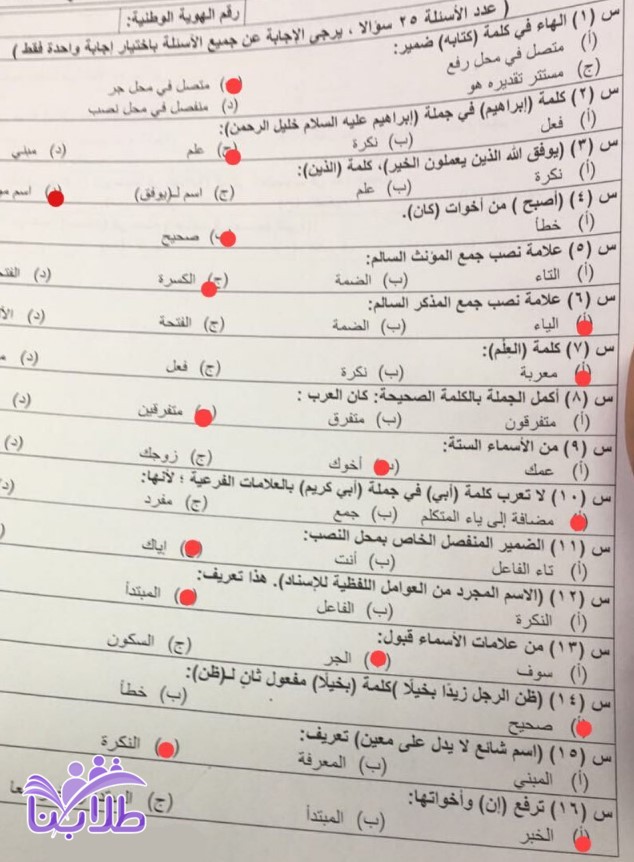 رقم الهوية الوطنية:
( عدد الأسئلة ٢٥ سؤالا ، يرجى الإجابة عن جميع الأسئلة باختيار إجابة واحدة فقط )
س (١) الهاء في كلمة (كتابه) ضمير:
(أ) متصل في محل رفع متصل في محل جر
(ج) مستتر تقديره هو (د) منفصل في محل نصب
س (٢) كلمة (إبراهيم) في جملة (إبراهيم عليه السلام خليل الرحمن):
(أ) فعل (ب) نكرة (ج) علم (د) مبني
س (٣) (يوفق الله الذين يعملون الخير)، كلمة (الذين):
(أ) نكرة (ب) علم (ج) اسم لـ(يوفق) (د) اسم
س (٤) (أصبح ) من أخوات (كان).
(أ) خطأ (ب) صحيح
س (٥) علامة نصب جمع المؤنث السالم:
(أ) التاء (ب) الضمة (ج) الكسرة (د)
س (٦) علامة نصب جمع المذكر السالم:
(أ) الياء (ب) الضمة (ج) الفتحة (د)
س (٧) كلمة (العِلْم):
(أ) معربة (ب) نكرة (ج) فعل (د)
س (٨) أكمل الجملة بالكلمة الصحيحة: كان العرب :
(أ) متفرقون (ب) متفرق متفرقين (د)
س (٩) من الأسماء الستة:
(أ) عمك (ب) أخوك (ج) زوجك (د)
س (١٠) لا تعرب كلمة (أبي) في جملة (أبي كريم) بالعلامات الفرعية ؛ لأنها:
(أ) مضافة إلى ياء المتكلم (ب) جمع (ج) مفرد (د)
س (١١) الضمير المنفصل الخاص بمحل النصب:
(أ) تاء الفاعل (ب) أنت (ج) إياك
س (١٢) (الاسم المجرد من العوامل اللفظية للإسناد). هذا تعريف:
(أ) النكرة (ب) الفاعل المبتدأ
س (١٣) من علامات الأسماء قبول:
(أ) سوف الجر (ج) السكون
س (١٤) (ظن الرجل زيدًا بخيلًا )كلمة (بخيلًا) مفعول ثانٍ لـ(ظن):
(أ) صحيح (ب) خطأ
س (١٥) (اسم شائع لا يدل على معين) تعريف:
(أ) المبني (ب) المعرفة النكرة
س (١٦) ترفع (إن) وأخواتها:
(أ) الخبر (ب) المبتدأ (ج)
طلابنا